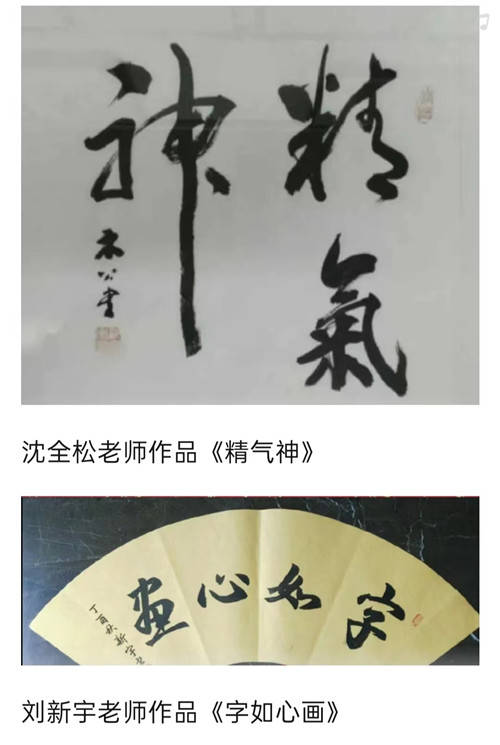 精氣
神
木公書
沈全松老师作品《精气神》
字如心画
丁酉秋新宇书
刘新宇老师作品《字如心画》